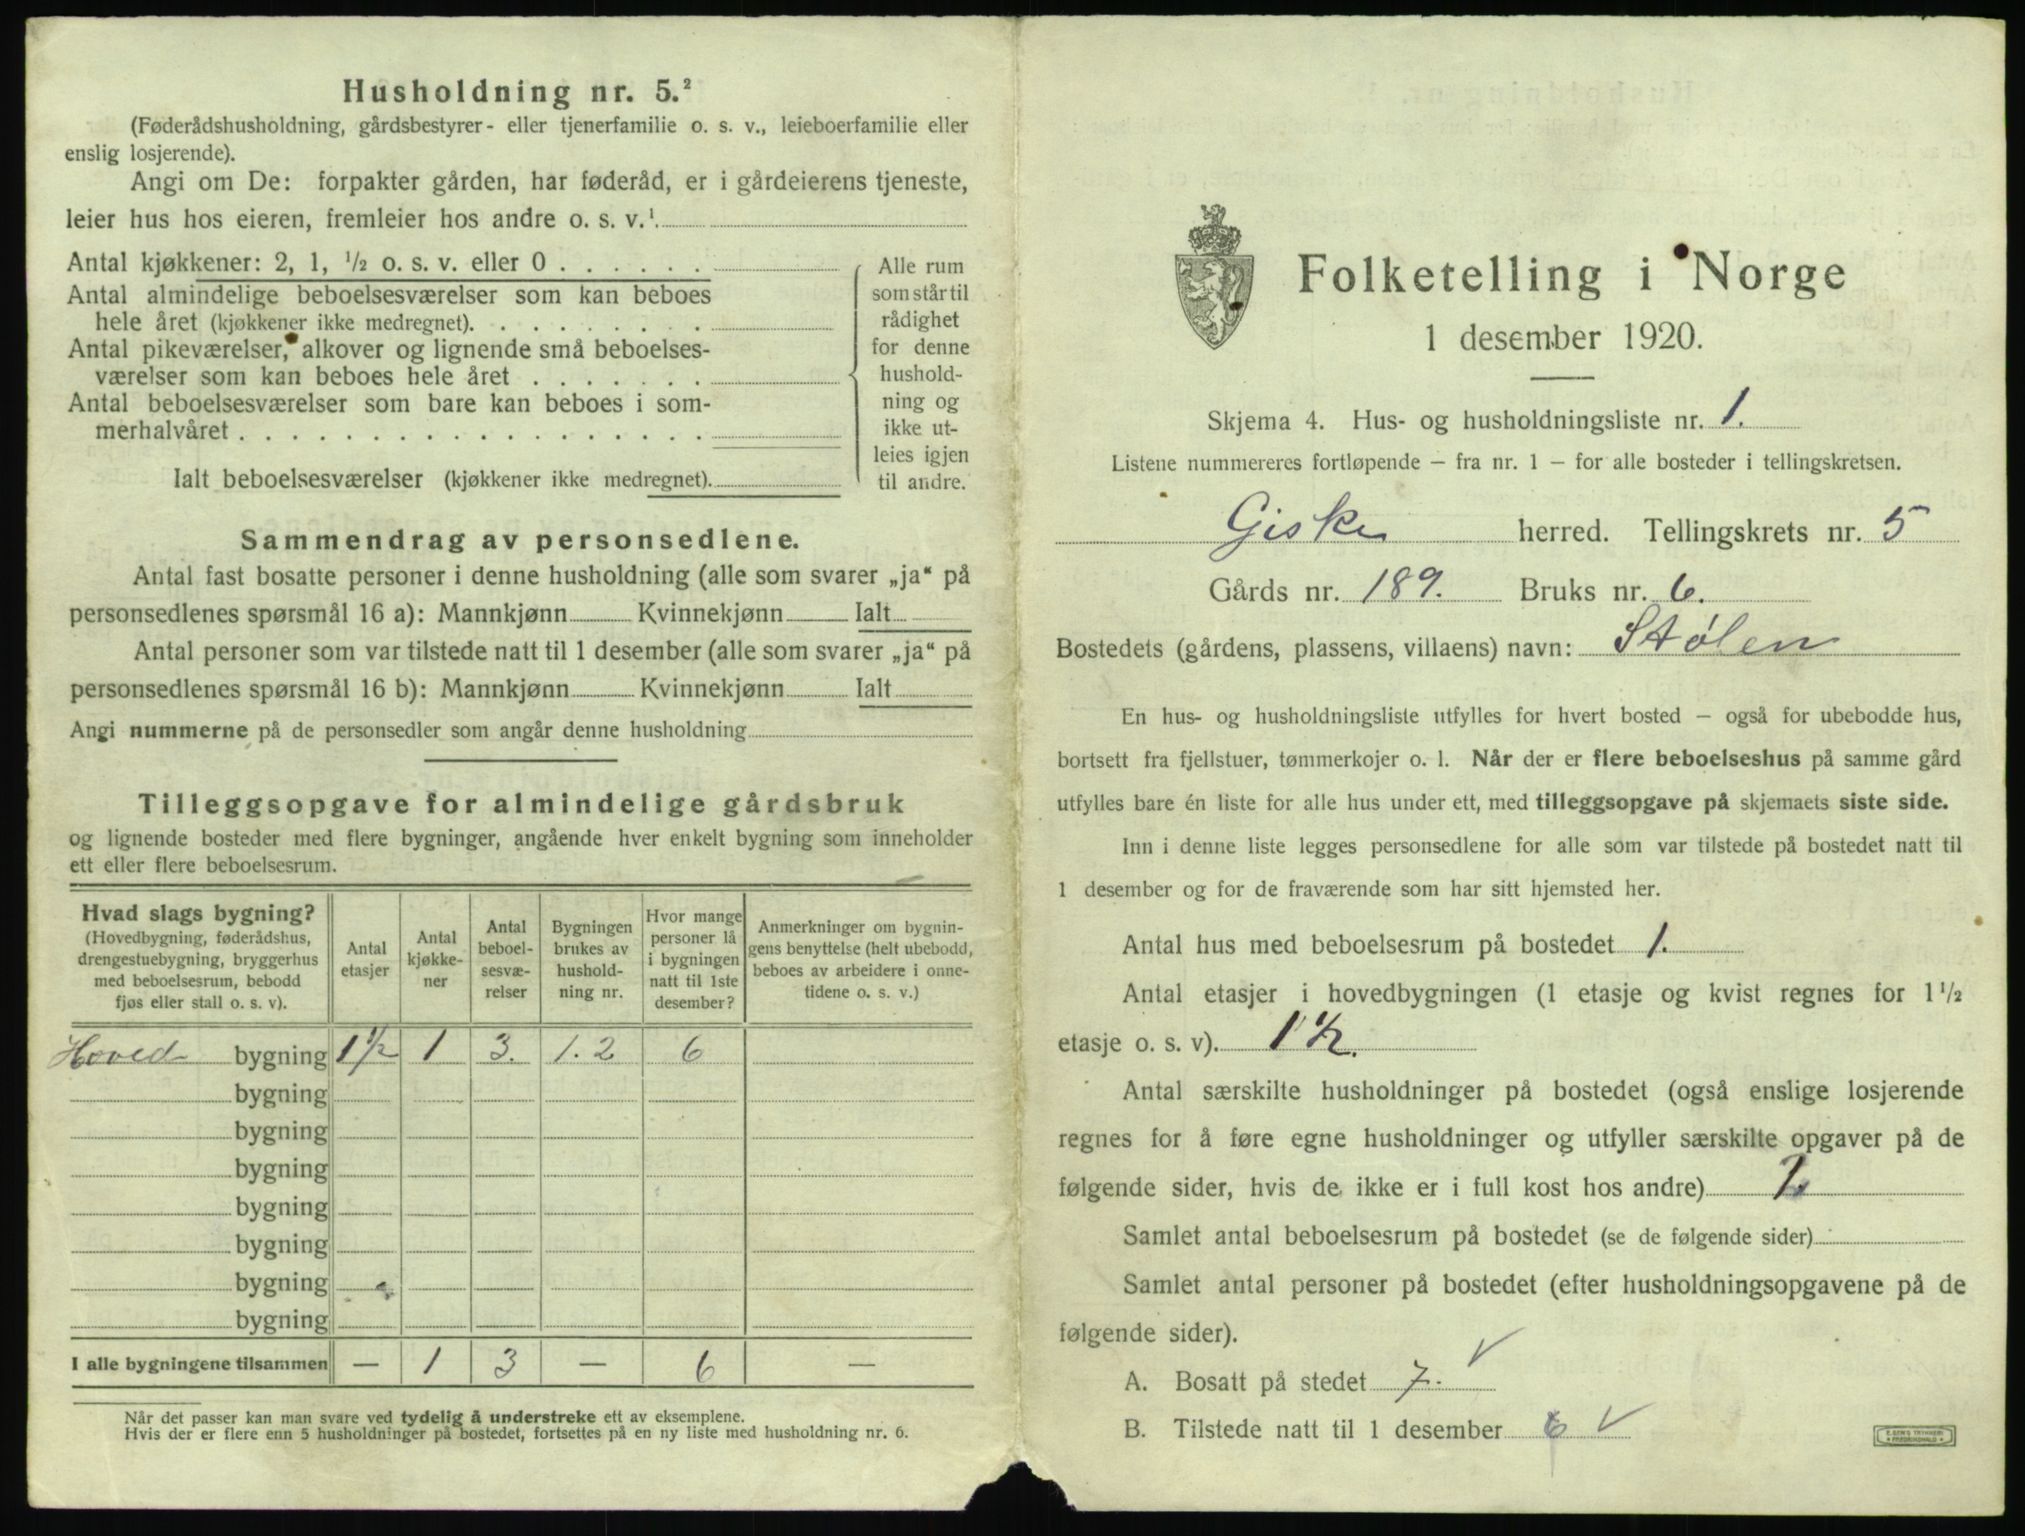 Husholdning nr. 5.²
(Føderådshusholdning, gårdsbestyrer- eller tjenerfamilie o. s. v., leieboerfamilie eller
enslig losjerende).
Angi om De: forpakter gården, har føderåd, er i gårdeierens tjeneste,
leier hus hos eieren, fremleier hos andre o. s. v.¹
Antal kjøkkener: 2, 1, ½ o. s. v. eller 0 . . . . . .
Antal almindelige beboelsesværelser som kan beboes
hele året (kjøkkener ikke medregnet). . . . . . . . .
Antal pikeværelser, alkover og lignende små beboelses-
værelser som kan beboes hele året . . . . . . .
Antal beboelsesværelser som bare kan beboes i som-
merhalvåret . . . . . . . . . . . . . . . . . .
Ialt beboelsesværelser (kjøkkener ikke medregnet).
Alle rum
som står til
rådighet
for denne
hushold-
ning og
ikke ut-
leies igjen
til andre.
Sammendrag av personsedlene.
Antal fast bosatte personer i denne husholdning (alle som svarer „ja“ på
personsedlenes spørsmål 16 a): Mannkjønn Kvinnekjønn Ialt
Antal personer som var tilstede natt til 1 desember (alle som svarer „ja“ på
personsedlenes spørsmål 16 b): Mannkjønn Kvinnekjønn Ialt
Angi nummerne på de personsedler som angår denne husholdning
Tilleggsopgave for almindelige gårdsbruk
og lignende bosteder med flere bygninger, angående hver enkelt bygning som inneholder
ett eller flere beboelsesrum.
Hvad slags bygning?
(Hovedbygning, føderådshus,
drengestuebygning, bryggerhus
med beboelsesrum, bebodd
fjøs eller stall o. s. v).
Antal
etasjer
Antal
kjøkke-
ner
Antal
beboel-
sesvæ-
relser
Bygningen
brukes av
hushold-
ning nr.
Hvor mange
personer lå
i bygningen
natt til 1ste
desember?
Anmerkninger om bygnin-
gens benyttelse (helt ubebodd,
beboes av arbeidere i onne-
tidene o. s. v.)
Hoved bygning 1½ 1 3. 1.2 6
bygning
bygning
bygning
bygning
bygning
bygning
bygning
I alle bygningene tilsammen — 1 3 — 6 —
Når det passer kan man svare ved tydelig å understreke ett av eksemplene.
Hvis der er flere enn 5 husholdninger på bostedet, fortsettes på en ny liste med husholdning nr. 6.
Folketelling i Norge
1 desember 1920.
Skjema 4. Hus- og husholdningsliste nr. 1.
Listene nummereres fortløpende — fra nr. 1 — for alle bosteder i tellingskretsen.
Giske herred. Tellingskrets nr. 5
Gårds nr. 189. Bruks nr. 6.
Bostedets (gårdens, plassens, villaens) navn: Stølen
En hus- og husholdningsliste utfylles for hvert bosted — også for ubebodde hus,
bortsett fra fjellstuer, tømmerkojer o. l. Når der er flere beboelseshus på samme gård
utfylles bare én liste for alle hus under ett, med tilleggsopgave på skjemaets siste side.
Inn i denne liste legges personsedlene for alle som var tilstede på bostedet natt til
1 desember og for de fraværende som har sitt hjemsted her.
Antal hus med beboelsesrum på bostedet 1.
Antal etasjer i hovedbygningen (1 etasje og kvist regnes for 1½
etasje o. s. v). 1½.
Antal særskilte husholdninger på bostedet (også enslige losjerende
regnes for å føre egne husholdninger og utfyller særskilte opgaver på de
følgende sider, hvis de ikke er i full kost hos andre)
Samlet antal beboelsesrum på bostedet (se de følgende sider)
Samlet antal personer på bostedet (efter husholdningsopgavene på de
følgende sider).
A. Bosatt på stedet 7. ✓
B. Tilstede natt til 1 desember 6 ✓
E. SEM'S TRYKKERI
FREDRIKSHALD